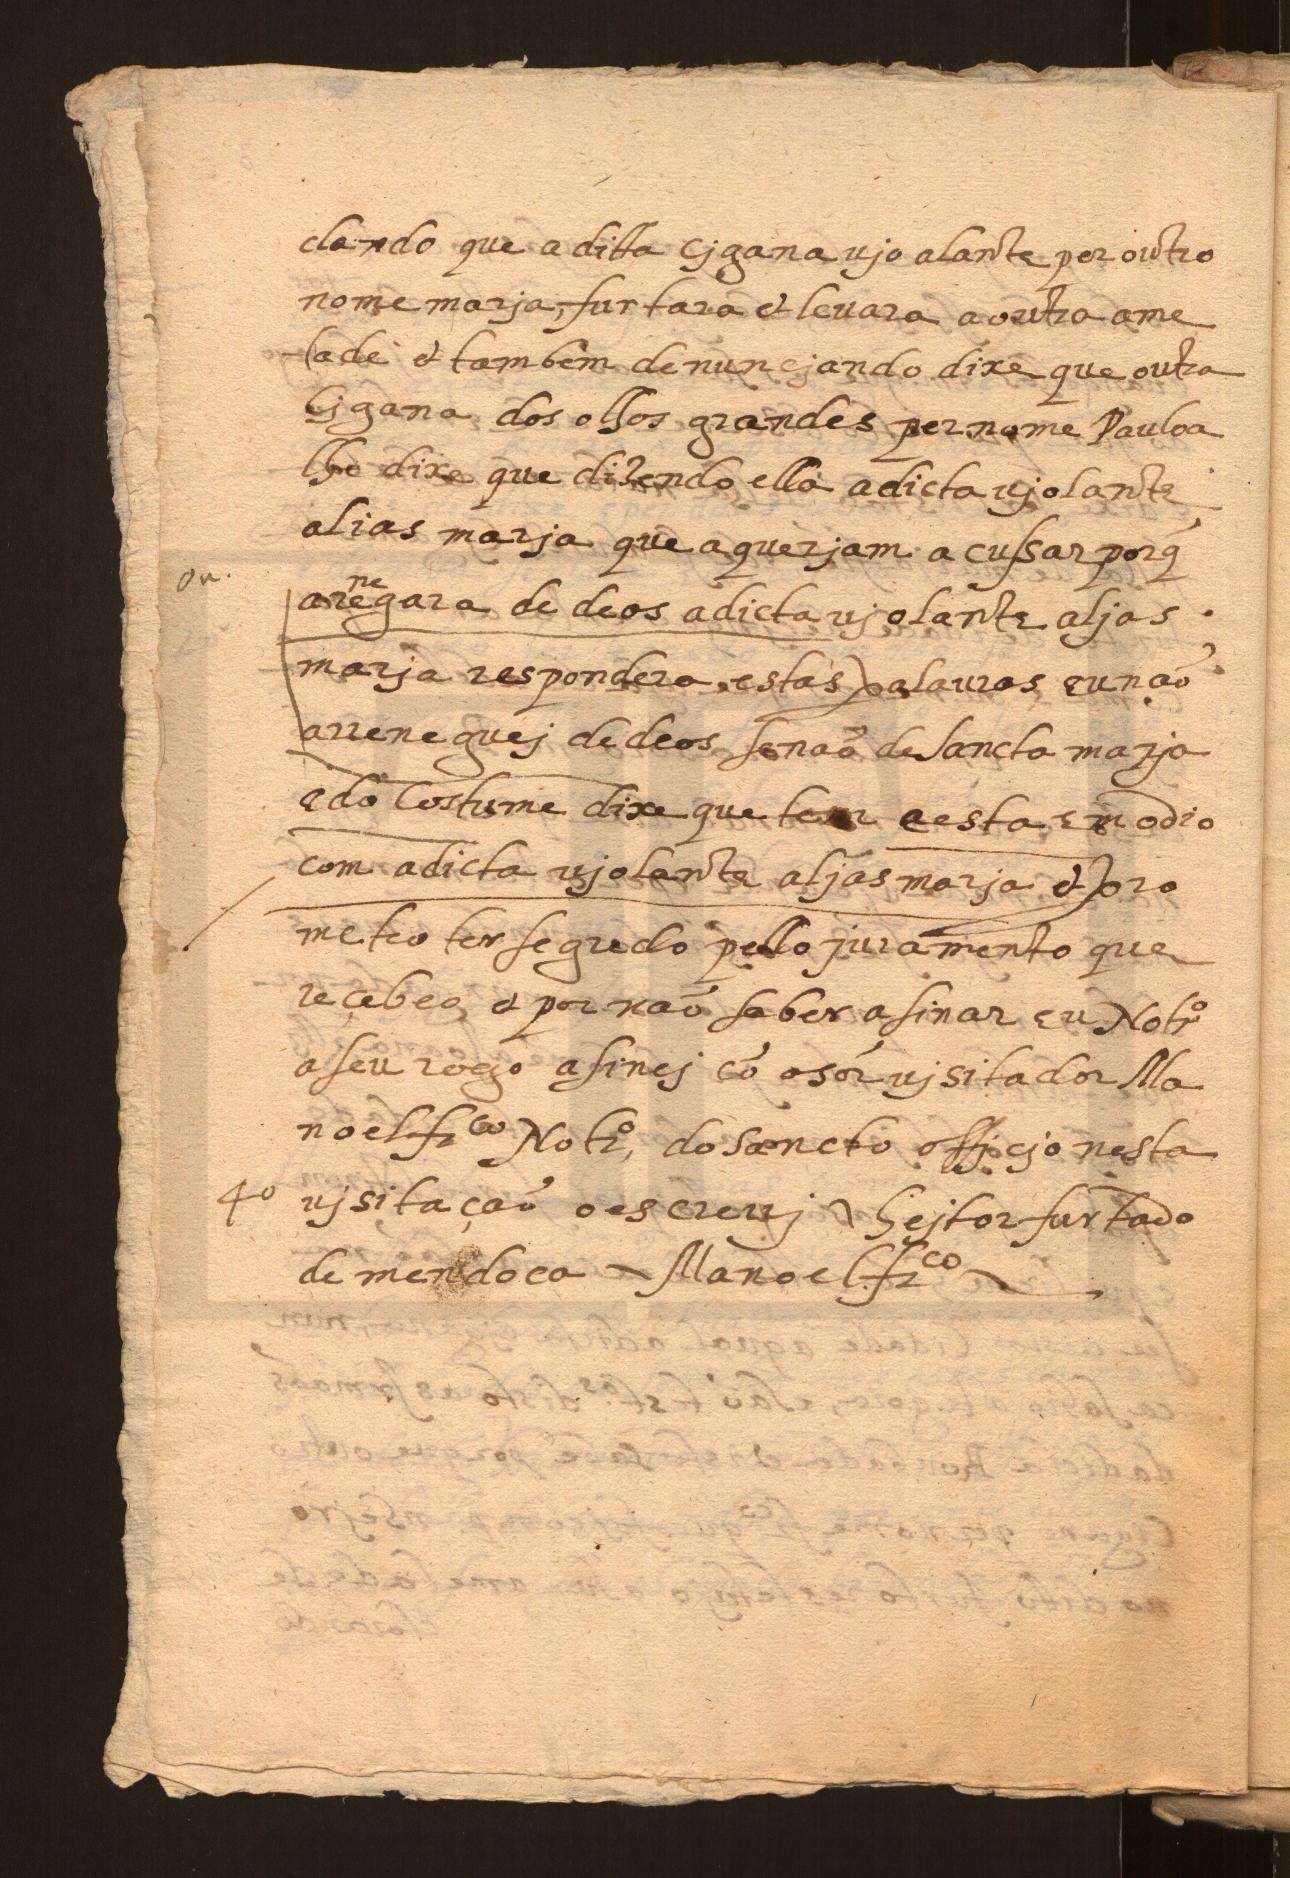 clando que a ditta Cjgana vjolante per outro
nome marja, furtara & levara a outra ame
tade & tambem denuncjando dixe que outra
Cjgana dos olhos grandes per nome Paula
lhe dixe que dizendo ella a dicta vjolante
alias marja que a querjam acussar porq̃
on.
arenegara de deos a dicta vjolante aljas
marja respondera estas palavras, eu naõ
arreneguej de deos senaõ de sancta marja
e do Costume dixe que tem e esta em odio
com a dicta vjolante aljas marja & pro
meteo ter segredo pello juramento que
reçebeo, & por naõ saber asinar eu Notrº
a seu rogo asinej cõ o sõr vjsitador Ma
noel frco Notrº, do sancto offjcjo nesta
4º vjsitaçaõ o escrevj ~ hejtor furtado
de mendoca ~ Manoel frco ~